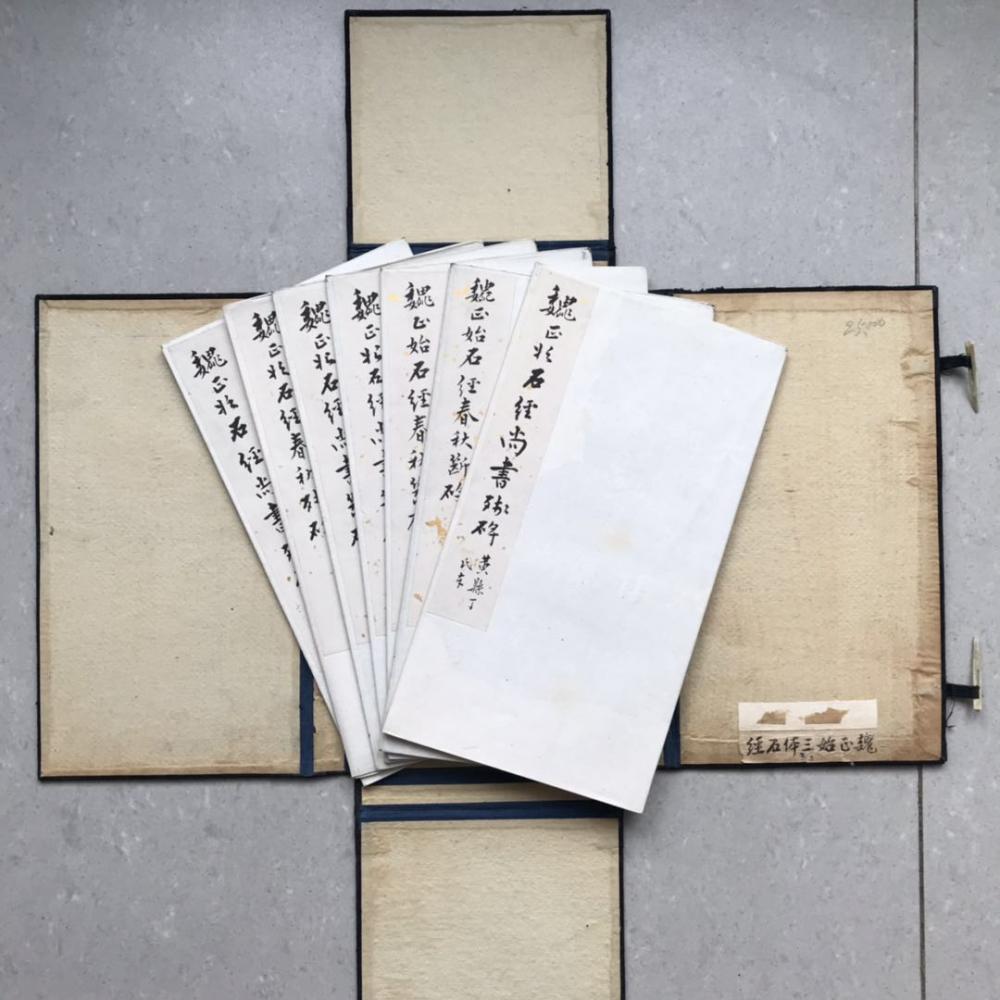 魏正始石經尚書殘碑
黃縣丁
氏
魏正始石經春秋斷碑
魏正始石經春秋
魏正始石經尚書
魏正始石經尚書
魏正始石經春秋殘
魏正始石經尚書
25,000
魏正始三体石經